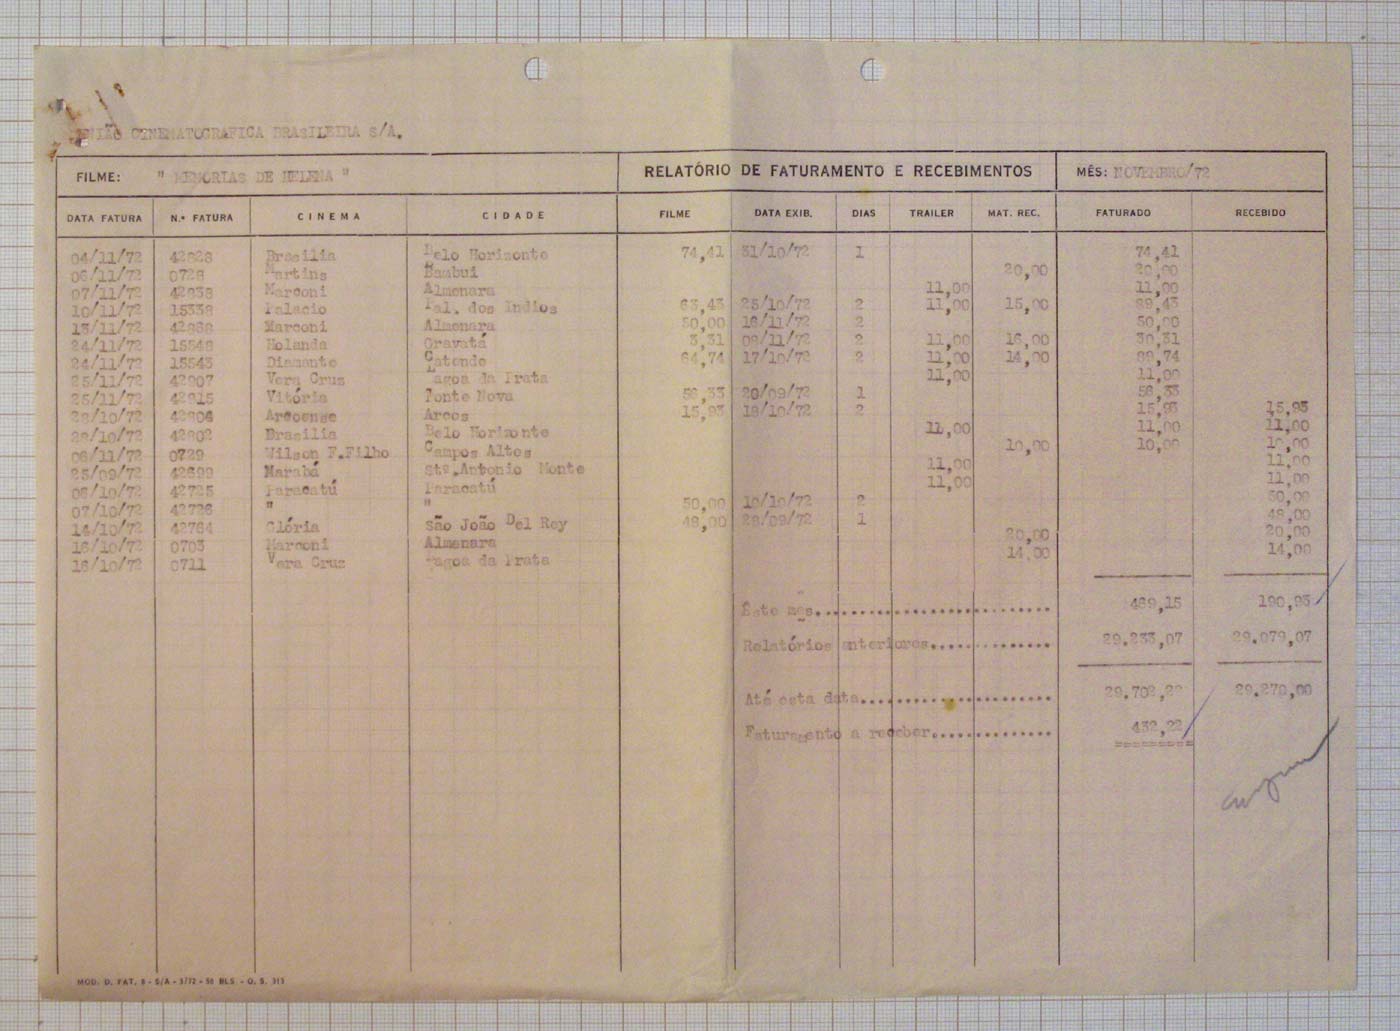 UNIÃO CINEMATOGRAFICA BRASILEIRA S/A.
FILME: " MEMORIAS DE HELENA " RELATÓRIO DE FATURAMENTO E RECEBIMENTOS MÊS: NOVEMBRO/72
DATA FATURA N.º FATURA CINEMA CIDADE FILME DATA EXIB. DIAS TRAILER MAT. REC. FATURADO RECEBIDO
04/11/72 42828 Brasilia Belo Horizonte 74,41 31/10/72 1 74,41
06/11/72 0728 Martins Bambui 20,00 20,00
07/11/72 42838 Marconi Almenara 11,00 11,00
10/11/72 15338 Palacio Pal. dos Indios 63,43 25/10/72 2 11,00 15,00 89,43
13/11/72 42868 Marconi Almenara 50,00 16/11/72 2 50,00
24/11/72 15548 Holanda Gravatá 3,31 08/11/72 2 11,00 16,00 30,31
24/11/72 15543 Diamante Catende 64,74 17/10/72 2 11,00 14,00 89,74
25/11/72 42907 Vera Cruz Lagoa da Prata 11,00 11,00
25/11/72 42915 Vitória Ponte Nova 56,33 20/09/72 1 56,33
28/10/72 42806 Arcoense Arcos 15,93 18/10/72 2 15,93 15,93
28/10/72 42802 Brasilia Belo Horizonte 11,00 11,00 11,00
06/11/72 0729 Wilson F.Filho Campos Altos 10,00 10,00 10,00
25/09/72 42699 Marabá Stº.Antonio Monte 11,00 11,00
06/10/72 42725 Paracatú Paracatú 11,00 11,00
07/10/72 42726 " " 50,00 10/10/72 2 50,00
14/10/72 42764 Glória São João Del Rey 48,00 28/09/72 1 48,00
16/10/72 0703 Marconi Almenara 20,00 20,00
16/10/72 0711 Vera Cruz Lagoa da Prata 14,00 14,00
Êste mês............................ 469,15 190,93
Relatórios anteriores............... 29.233,07 29.079,07
Até esta data....................... 29.702,22 29.270,00
Faturamento a receber............... 432,22
=========
MOD. D. FAT. 8 - S/A - 3/72 - 50 BLS - O. S. 313